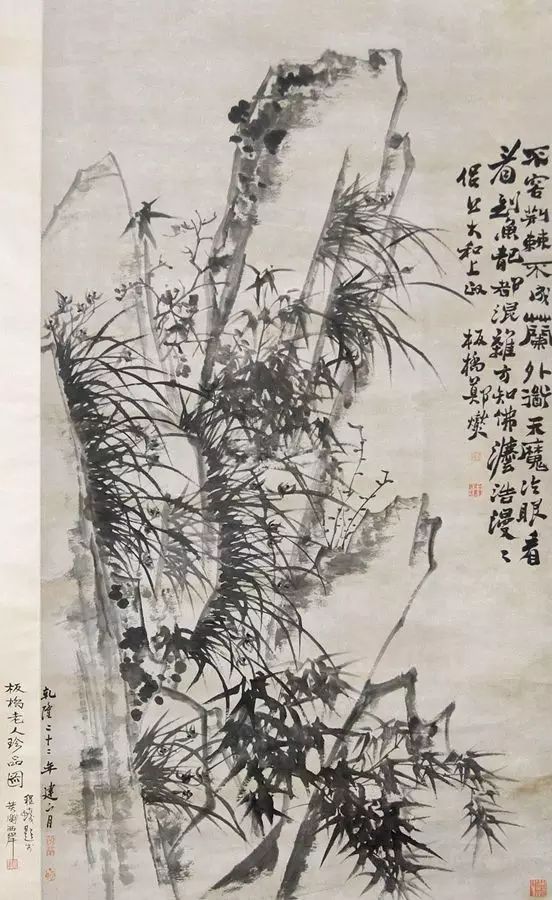 不容荆棘不成蘭外道天魔冷眼看
看到魚龍都混雜方知佛灋浩漫〻
侶松大和上政 板橋鄭燮
乾隆二十二年建月
板橋老人珍品圖